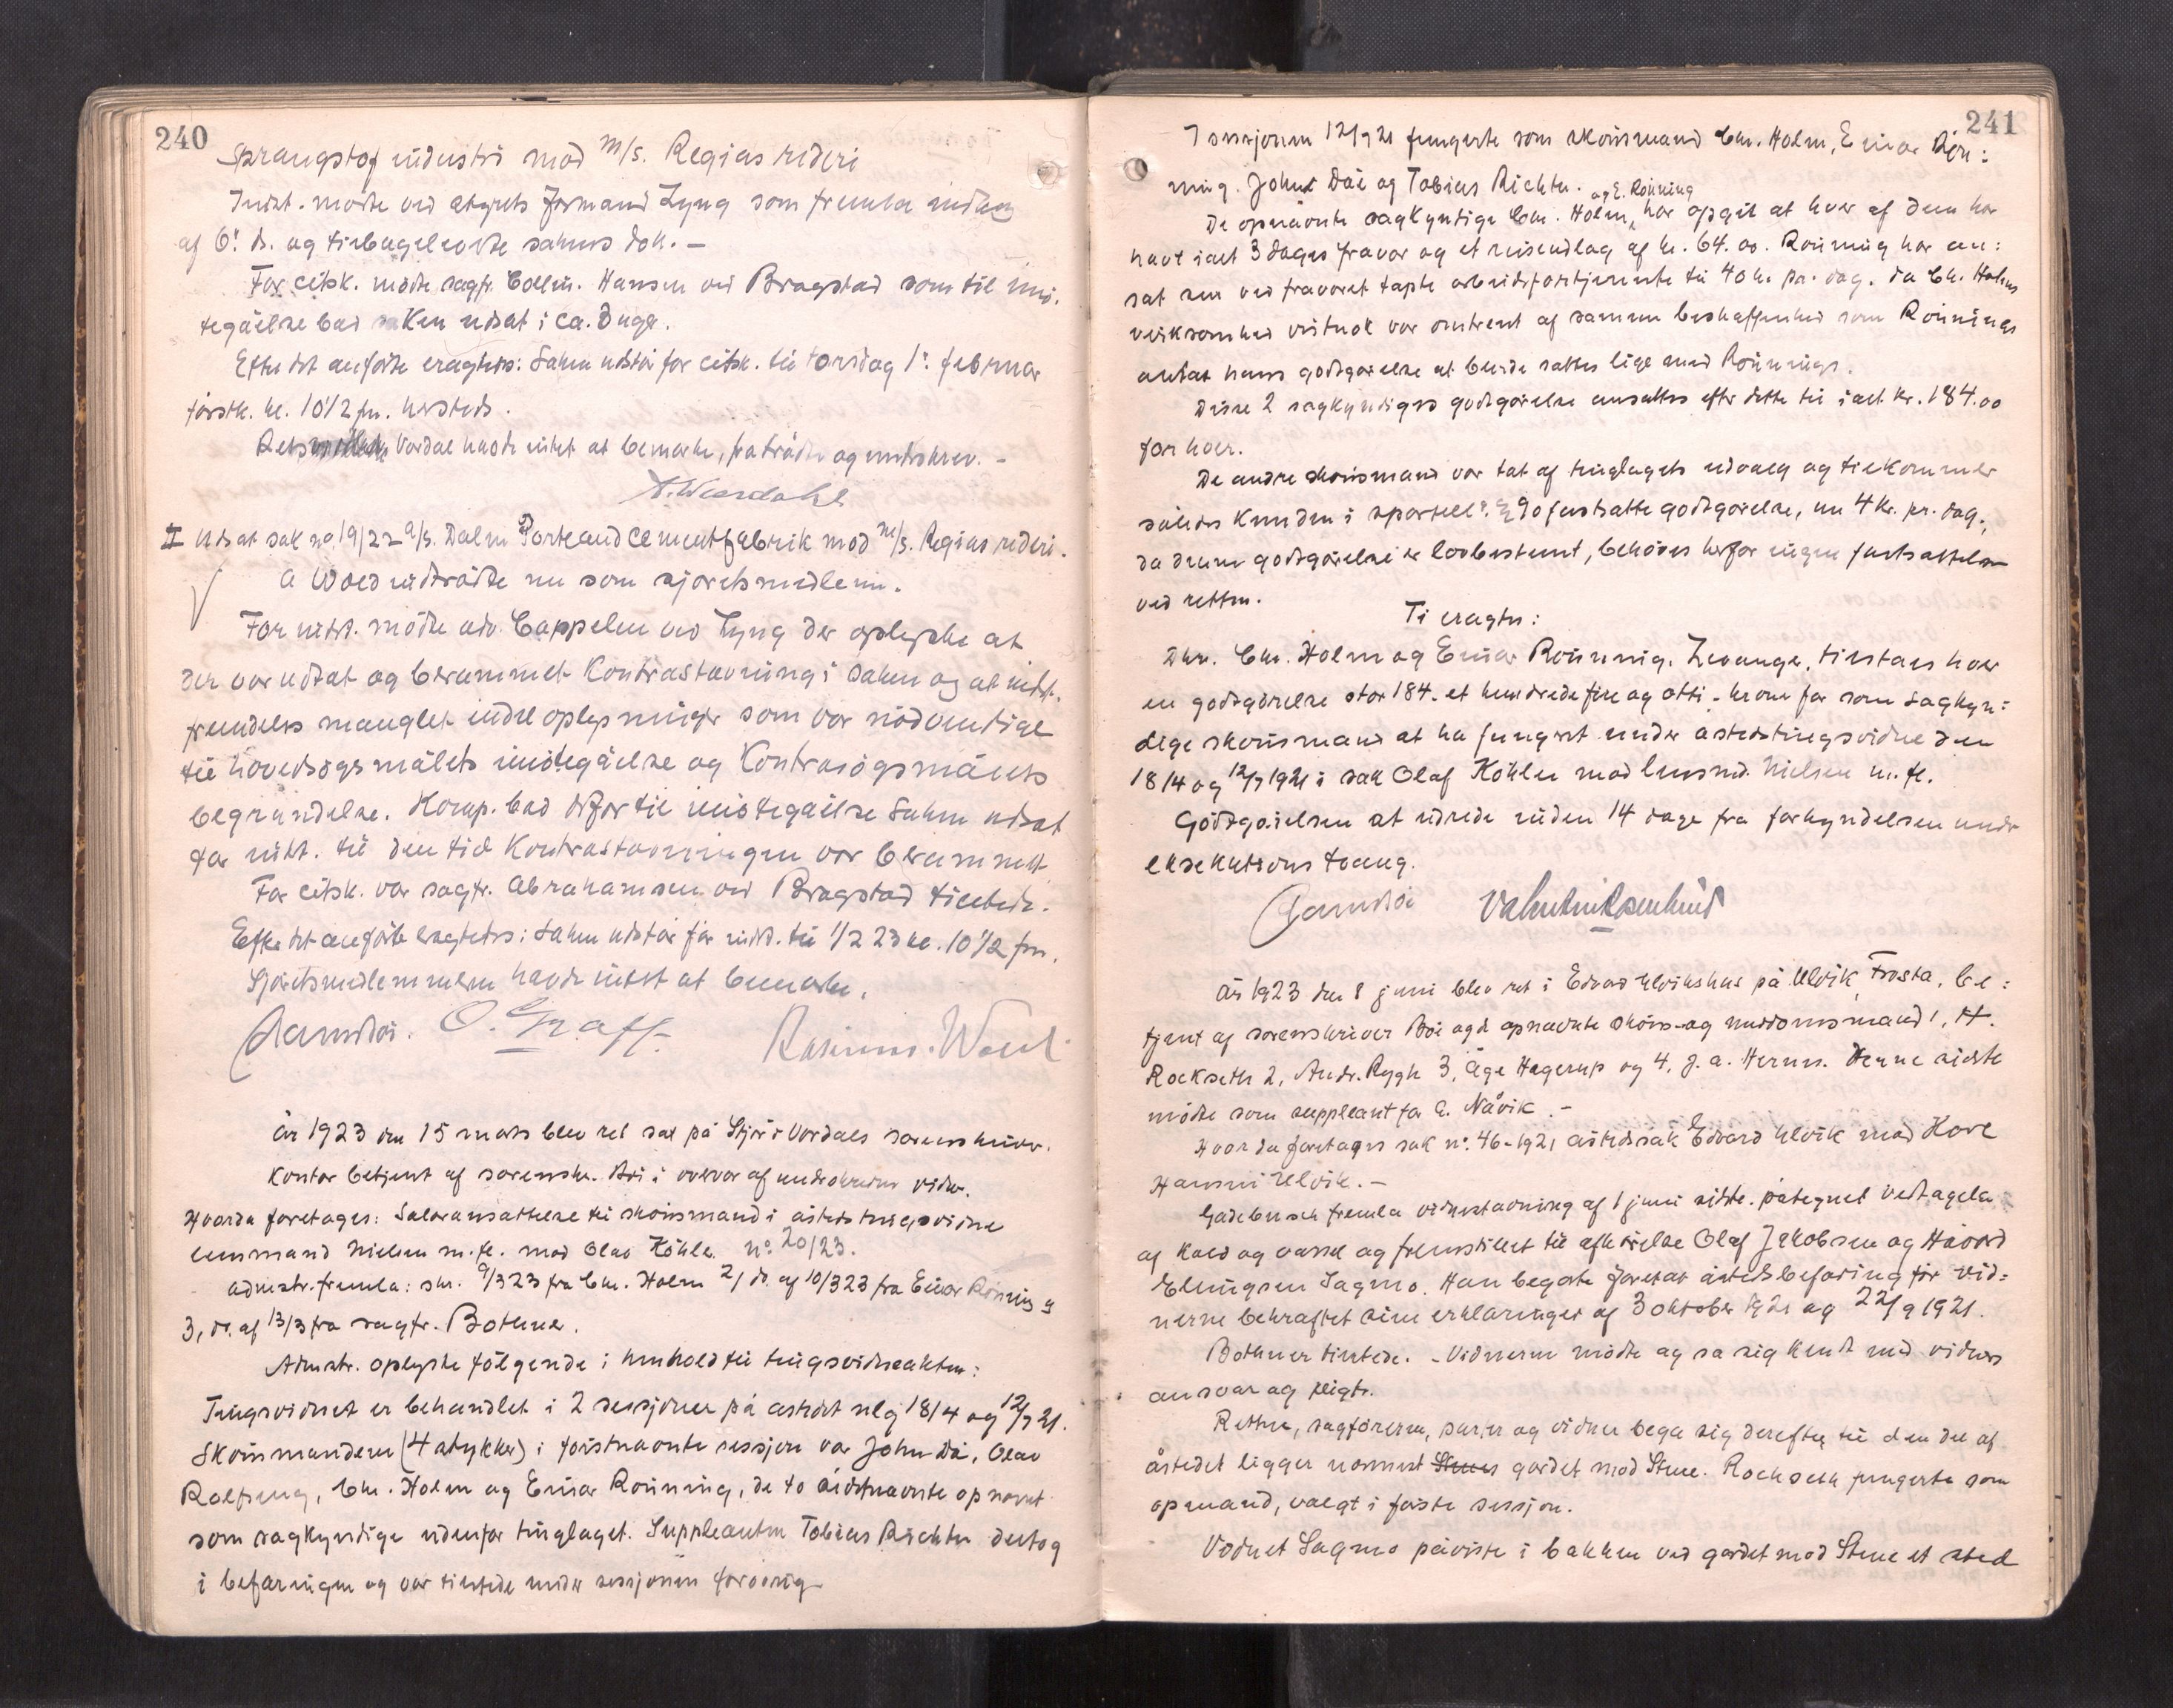 240
Sprængstofindustri mod m/s. Regias rideri
Indst. møtte ved atgrets formand Lyng som fremla indlæg
af 6. ds. og tilbageleverte sakens dok. —
For citsk. møtte sagfr. Collin. Hansen ved Bragstad som til imø,
tegåelse bad saken utsat i ca. 3 uger.
Efter det anførte eragtes: Saken utstår for citsk. til torsdag 1. februar
førstk. kl. 10 1/2 fm. hersteds.
Rets Vordal hadde intet at bemerke, fratrådte og underskrev. -
A. Werdahl
II Utsat sak no. 19/22 A/S. Dalen Portland Cementfabrik mod m/s. Regias rideri.
A Wold indtrådte nu som sjøretsmedlem.
For indst. møtte adv. Cappelen ved Lyng der oplyste at
der var utsat og berammet Kontrastævning i saken og at indst.
fremdeles manglet endel oplysninger som var nødvendige
til hovedsøgsmålets imøtegåelse og Kontrasøgsmålets
begrundelse. Komp. bad derfor til imøtegåelse saken utsat
for indst. til den tid Kontrastævningen var berammet
For citsk. var sagfr. Abrahamsen ved Bragstad tilstede.
Efter det anførte eragtedes: Saken utstår for indst. til 1/2 23 kl. 10 1/2 fm.
Sjøretsmedlemmerne havde intet at bemerke.
O. Graff. Rasmus. Wold
År 1923 den 15 mars blev ret sat på Stjør- i Vordals sorenskriver.
Kontor betjent af sorenskr. Bøe i overvær af underskrevne vidne.
Hvorda foretages: Salæransættelse til skønsmænd i åstedstingsvidne
lensmand Nielsen m.fl. mod Olav Köhler no. 20/23.
Admstr. fremla: skr. 9/3 23 fra Chr. Holm 2, ds. af 10/3 23 fra Einar Rønning og
3, ds. af 13/3 fra sagfr. Bothner.
Admstr. oplyste følgende i henhold til tingsvidneakten:
Tingsvidnet er behandlet i 2 sessjoner på åstedet nlg 18/4 og 12/7 21.
Skønsmændene (4 stykker) i førstnævnte sessjon var John Dæ, Olav
Rolfseng, Chr. Holm og Einar Rønning, de to sidstnævnte opnævnt
som sagkyndige utenfor tinglaget. Suppleanten Tobias Richter deltog
i befaringen og var tilstede under sessjonen forøvrig
241
I sessjonen 12/7 21 fungerte som skønsmænd Chr. Holm, Einar Røn:
ning. John Dæ og Tobias Richter.
og E. Rønning
De opnævnte sagkyndige Chr. Holm, har opgit at hver af dem har
havt ialt 3 dages fravær og et reiseutlæg af kr. 64.00. Rønning har an:
sat sin ved fraværet tapte arbeidsfortjeneste til 40 kr. pr. dag. Da Chr. Holms
virksomhed vistnok var omtrent af samme beskaffenhed som Rønnings
antas hans godtgørelse at burde sættes lige med Rønnings.
Disse 2 sagkyndiges godtgørelse ansættes efter dette til ialt kr. 184.00
for hver.
De andre skønsmænd var tat af tinglagets utvalg og tilkommer
således kun den i sportell. § 90 fastsatte godtgørelse, nu 4 kr. pr. dag;
da denne godtgørelse er lovbestemt, behøves herfor ingen fastsættelse
ved retten.
Ti eragtes:
Dhr. Chr. Holm og Einar Rønning. Levanger, tilståes hver
en godtgørelse stor 184. et hundrede fire og otti - kroner for som sagkyn:
dige skønsmænd at ha fungert under åstedstingsvidne den
18/4 og 12/7 1921 i sak Olaf Köhler mod lensmd. Nielsen m. fl.
Godtgørelsen at utrede inden 14 dage fra forkyndelsen under
eksekutions tvang.
År 1923 den 8 juni blev ret i Edvard Ulviks hus på Ulvik, Frosta, be:
tjent af sorenskriver Bøe og de opnævnte skøns- og meddomsmænd 1, H.
Rockseth 2, Andr. Rygh 3, Åge Hagerup og 4, J. A. Hernes. Denne sidste
møtte som suppleant for A. Nåvik. -
Hvorda foretages sak no. 46-1921 åstedssak Edvard Ulvik mod Hove
Hansine Ulvik. -
Gadebusch fremla vidnestævning af 1 juni sidstl. påtegnet vedtagelse
af kald og varsel og fremstillet til afhørelse Olaf Jakobsen og Håvard
Ellingsen Sagmo. Han begærte foretat åstedsbefaring før vid:
nerne bekræftet sine erklæringer af 3 oktober 1921 og 22/9 1921.
Bothner tilstede. - Vidnerne møtte og sa sig kendt med vidners
ansvar og pligt.
Retten, sagførerne, parter og vidner bega sig derefter til den del af
åstedet ligger nærmest gærdet mod Stene. Rockseth fungerte som
opmand, valgt i første sessjon.
Vidnet Sagmo påviste i bakken ved gærdet mod Stene et sted